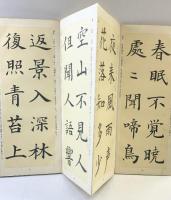 春眠不覚暁
處々聞啼鳥
夜来風雨声
花落知多少
空山不見人
但聞人語響
返景入深林
復照青苔上